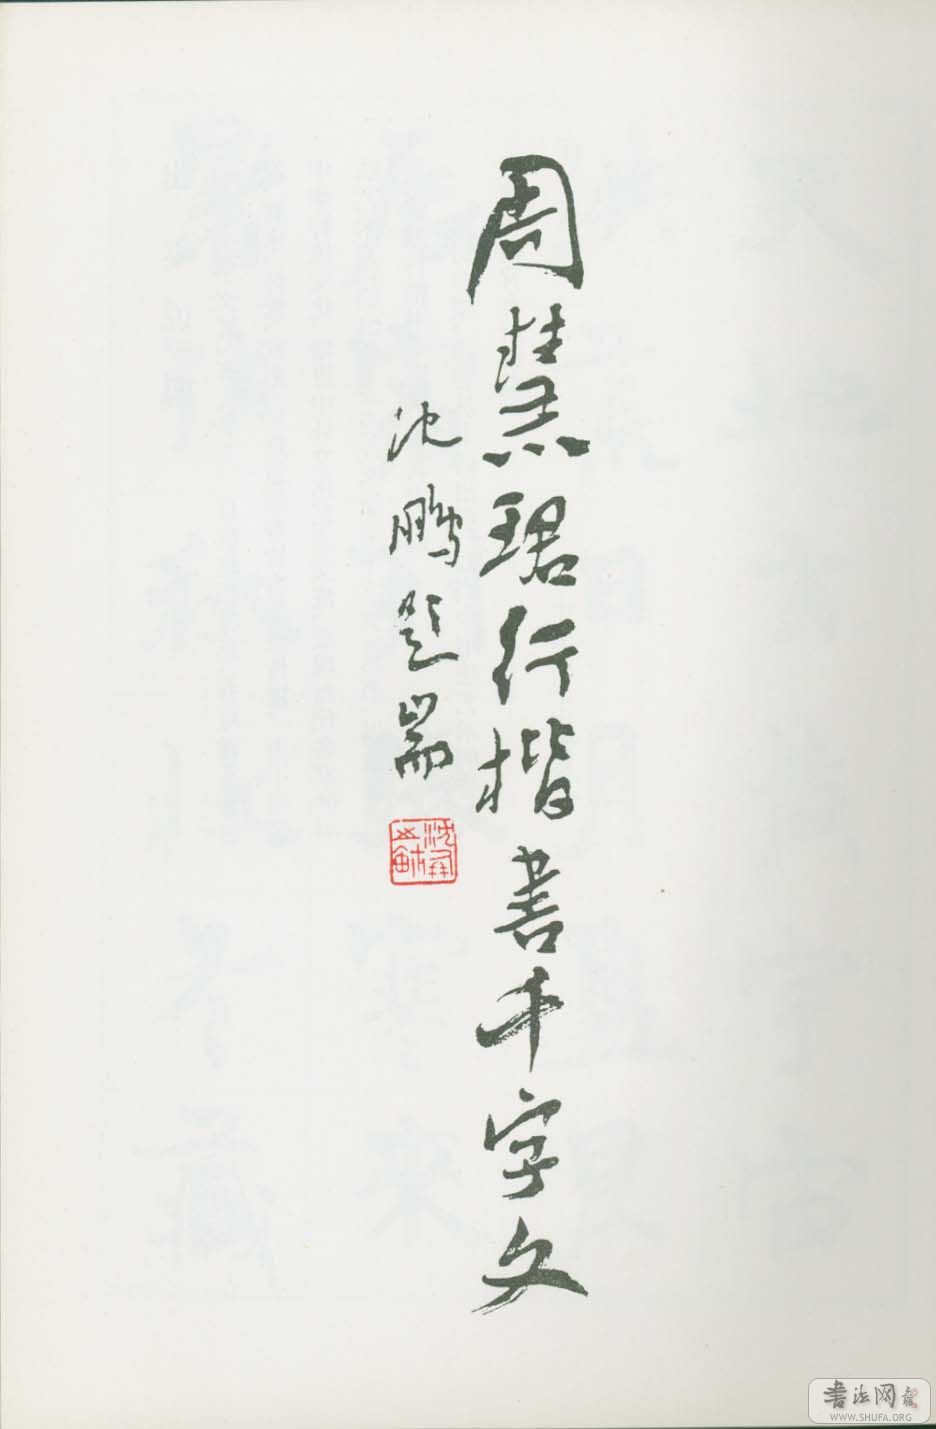 周慧珺行楷书千字文
沈鹏题耑
书法网
WWW.SHUFA.ORG